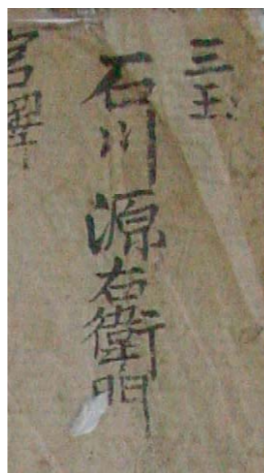 三玉
石川源右衛門